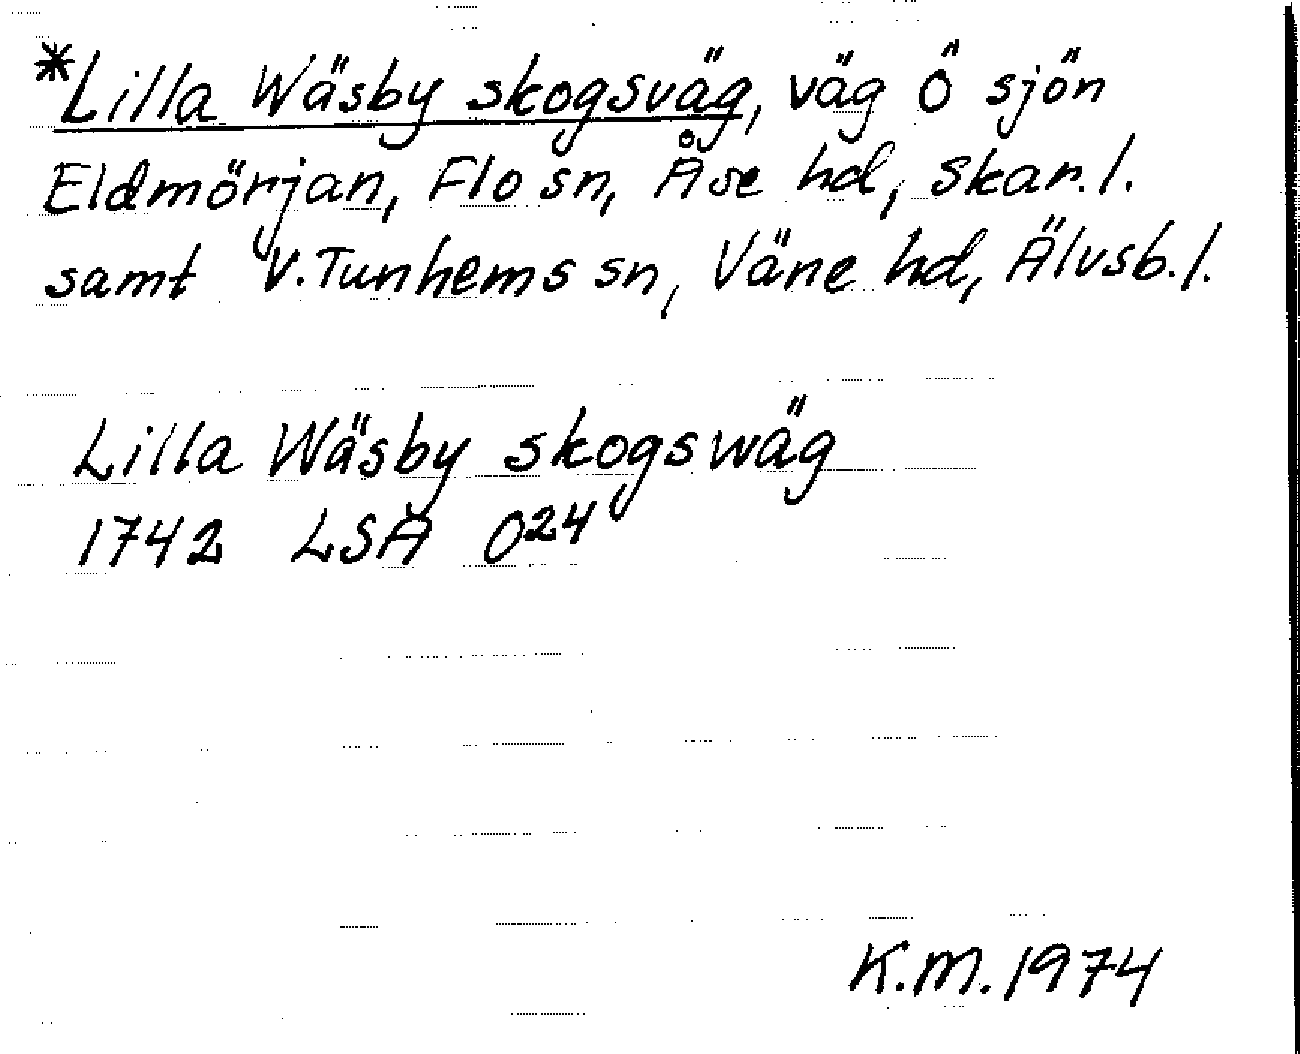 *Lilla Wäsby skogsväg, väg Ö sjön
Eldmörjan, Flo sn, Åse hd, Skar. l.
samt V. Tunhems sn, Väne hd, Älvsb. l.
Lilla Wäsby skogswäg
1742 LSA O24
K.M. 1974